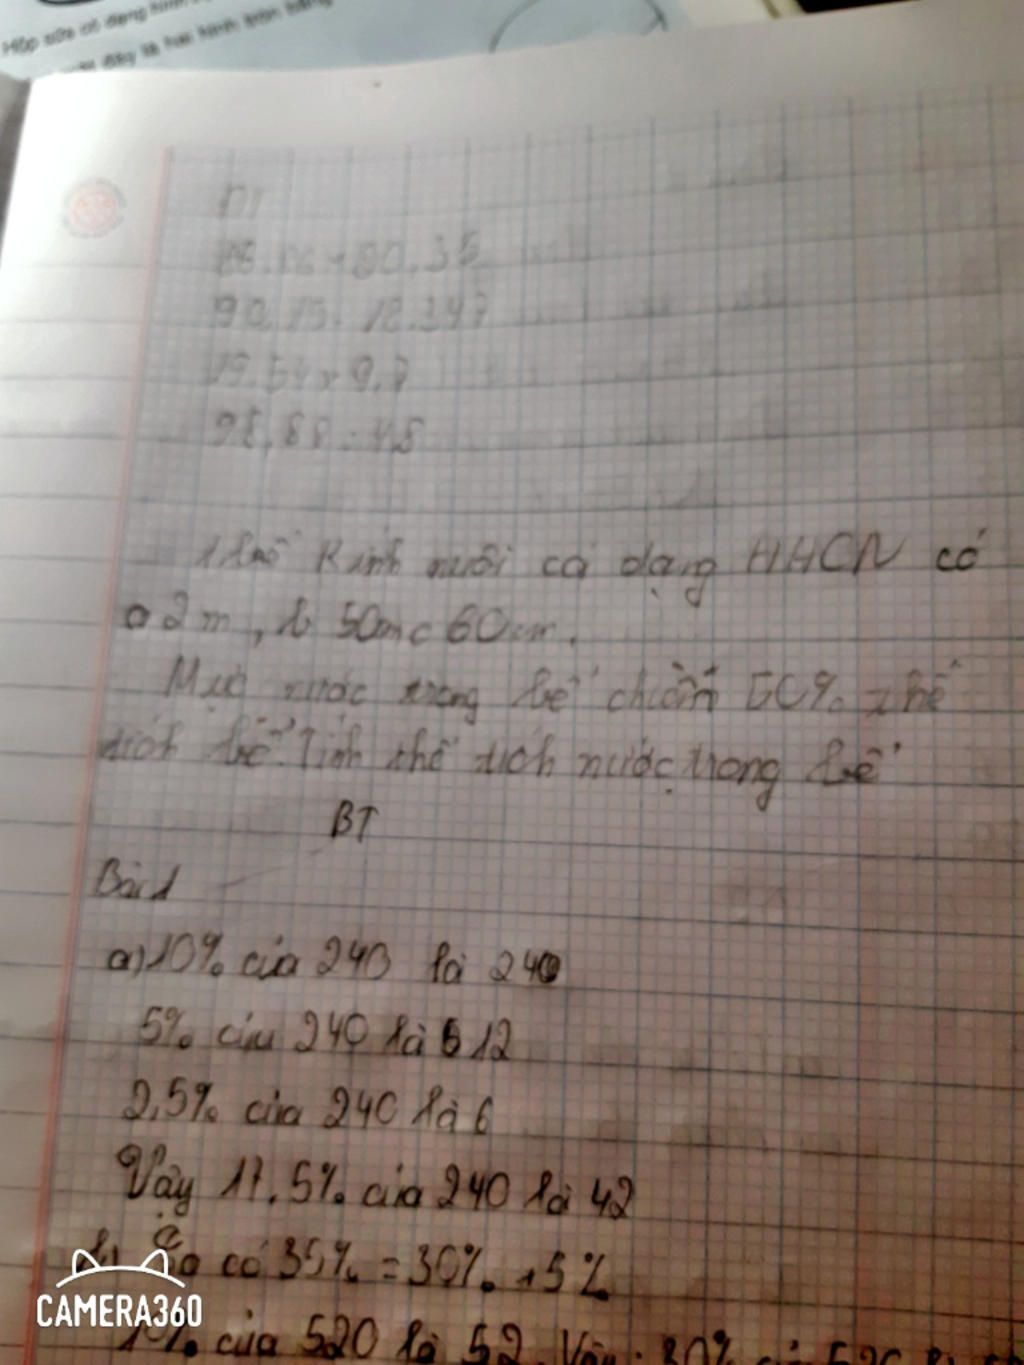 Hộp sữa có dạng hình
đáy là hai hình tròn bằng
80.35
90.75 - 12.347
19.54 x 9.7
98,88 : 48
1 bể kính nuôi cá dạng HHCN có
a 2 m, b 50cm c 60cm.
Mực nước trong bể chiếm 50% thể
tích bể. Tính thể tích nước trong bể
BT
Bài 1
a) 10% của 240 là 240
5% của 240 là 12
2,5% của 240 là 6
Vậy 17,5% của 240 là 42
b) Ta có 35% = 30% + 5%
10% của 520 là 52. Vậy: 30% của 520
CAMERA360